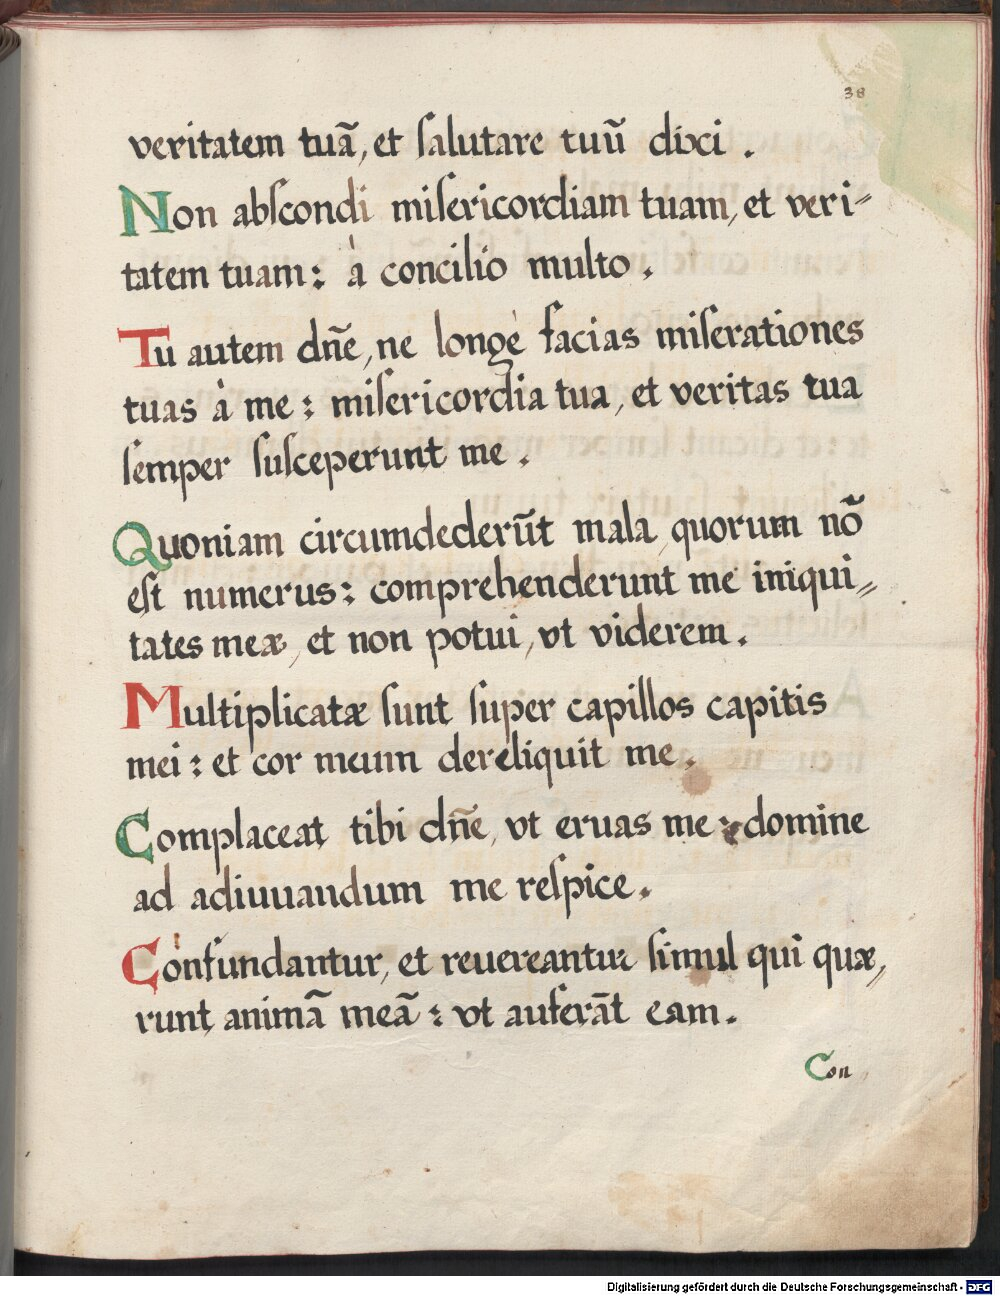 38
veritatem tuā, et ſalutare tuū dixi.
Non abſcondi miſericordiam tuam, et veri-
tatem tuam: à concilio multo.
Tu autem dn̄e, ne longè facias miſerationes
tuas à me: miſericordia tua, et veritas tua
ſemper ſuſceperunt me.
Quoniam circumdederūt mala, quorum nō
eſt numerus: comprehenderunt me iniqui-
tates meæ, et non potui, vt viderem.
Multiplicatæ ſunt ſuper capillos capitis
mei: et cor meum dereliquit me.
Complaceat tibi dn̄e, vt eruas me: domine
ad adiuuandum me reſpice.
Confundantur, et reuereantur ſimul qui quæ,
runt animā meā: vt auferāt eam.
Con
Digitalisierung gefördert durch die Deutsche Forschungsgemeinschaft - DFG